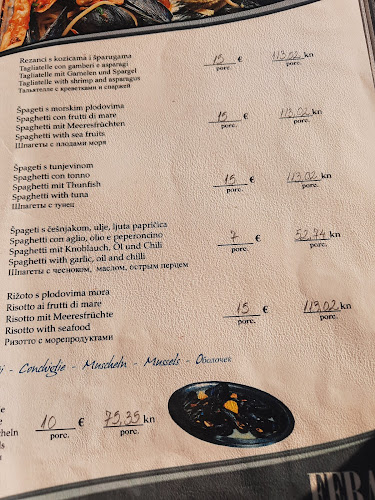 Rezanci s kozicama i šparugama
Tagliatelle con gamberi e asparagi
Tagliatelle mit Garnelen und Spargel
Tagliatelle with shrimp and asparagus
Тальятелле с креветками и спаржей
15 € 113,02 kn
porc. porc.
Špageti s morskim plodovima
Spaghetti con frutti di mare
Spaghetti mit Meeresfrüchten
Spaghetti with sea fruits
Шпагеты с плодами моря
15 € 113,02 kn
porc. porc.
Špageti s tunjevinom
Spaghetti con tonno
Spaghetti mit Thunfish
Spaghetti with tuna
Шпагеты с тунец
15 € 113,02 kn
porc. porc.
Špageti s češnjakom, ulje, ljuta papričica
Spaghetti con aglio, olio e peperoncino
Spaghetti mit Knoblauch, Öl und Chili
Spaghetti with garlic, oil and chilli
Шпагеты с чесноком, маслом, острым перцем
7 € 52,74 kn
porc. porc.
Rižoto s plodovima mora
Risotto ai frutti di mare
Risotto mit Meeresfrüchte
Risotto with seafood
Ризотто с морепродуктами
15 € 113,02 kn
porc. porc.
- Conchiglie - Muscheln - Mussels - Оболочек
10 € 75,35 kn
porc. porc.